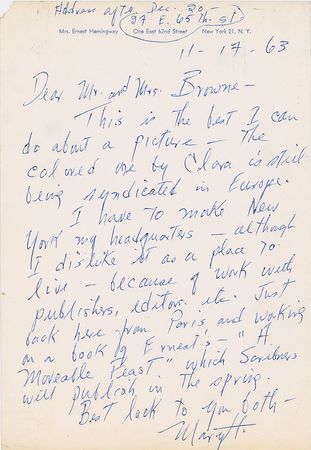 Address after Dec. 20,-
27 E. 65 th. St
Mrs. Ernest Hemingway One East 62nd Street New York 21, N. Y.
11-17-63
Dear Mr. and Mrs. Browne-
This is the best I can
do about a picture - the
colored one by Clara is still
being syndicated in Europe.
I have to make New
York my headquaters - although
I dislike it as a place to
live - because of work with
publishers, editors, etc. Just
back here from Paris and working
on a book of Ernest's - "A
Moveable Feast" which Scribners
will publish in the spring.
Best luck to you both -
Mary H.